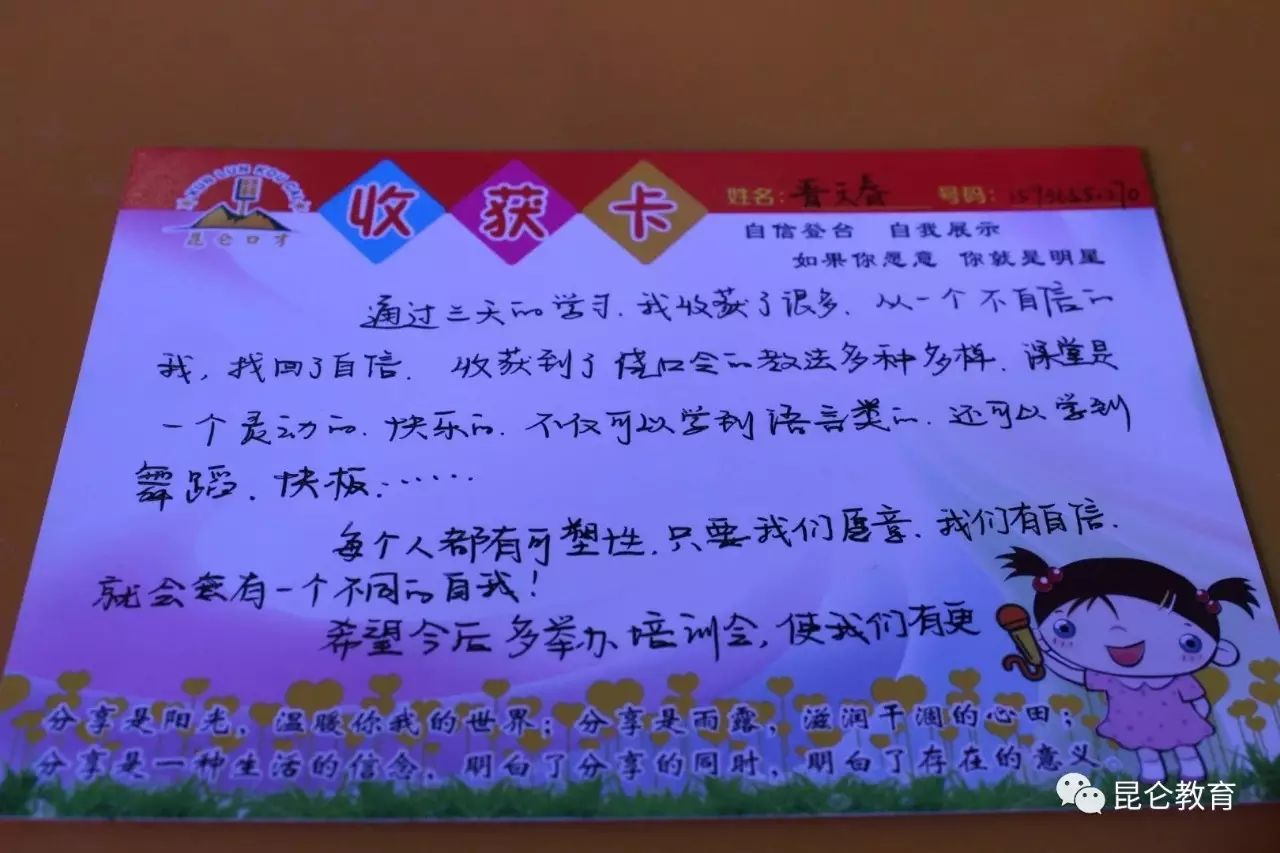 KUN LUN KOU CAI
昆仑口才
收获卡
姓名：晋文春 号码：
自信登台 自我展示
如果你愿意 你就是明星
通过三天的学习.我收获了很多.从一个不自信的
我，找回了自信. 收获到了绕口令的教法多种多样.课堂是
一个灵动的.快乐的.不仅可以学到语言类的.还可以学到
舞蹈.快板.……
每个人都有可塑性.只要我们愿意.我们有自信.
就会有一个不同的自我！
希望今后多举办培训会，使我们有更
分享是阳光，温暖你我的世界；分享是雨露，滋润干涸的心田；
分享是一种生活的信念，明白了分享的同时，明白了存在的意义
昆仑教育